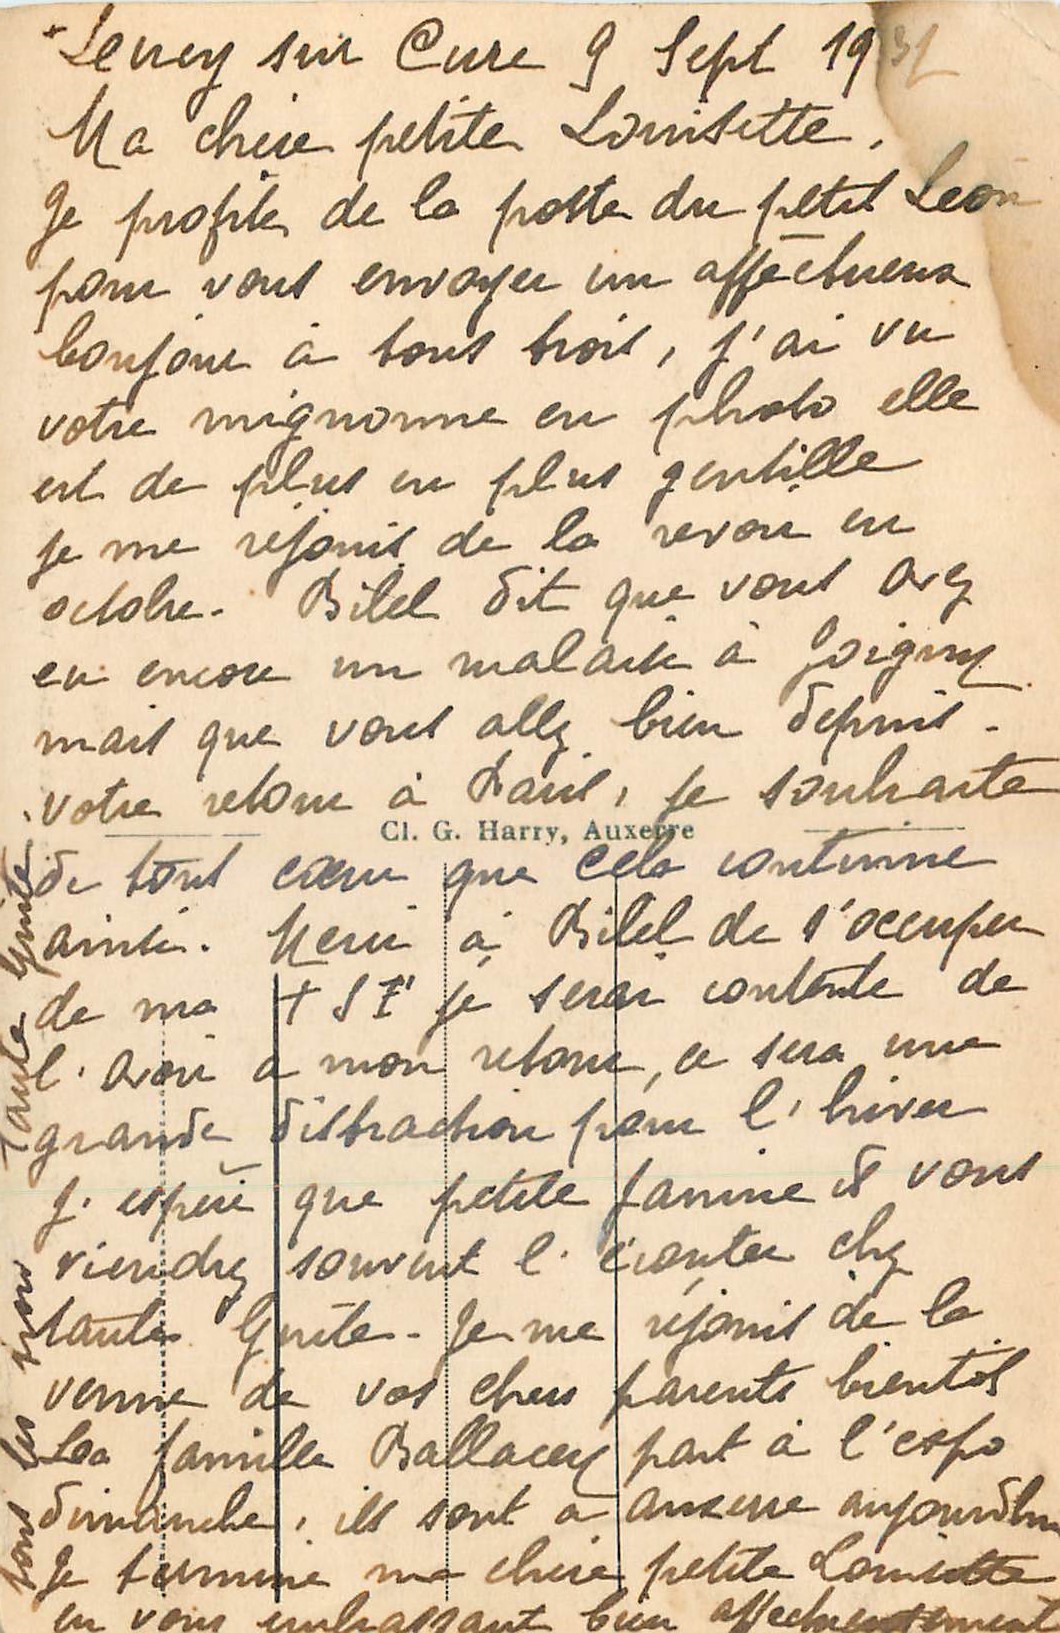 sur Cure 9 Sept 1931
Ma chère petite Louisette.
Je profite de la poste du petit Leon
pour vous envoyer un affectueux
bonjour à tous trois, j'ai vu
votre mignonne en photo elle
est de plus en plus gentille
je me réjouis de la revoir en
octobre. Bilel dit que vous avez
eu encore un malaise à Joigny
mais que vous allez bien depuis
votre retour à Paris, je souhaite
Cl. G. Harry, Auxerre
de tout cœur que cela continue
ainsi. Merci à Bilel de s'occuper
de ma TSF je serai contente de
l'avoir à mon retour, ce sera une
grande distraction pour l'hiver
j'espère que petite Janine et vous
viendrez souvent l'écouter chez
tante Guite. Je me réjouis de la
venue de vos chers parents bientôt
La famille Ballacey part à l'expo
dimanche, ils sont à Auxerre aujourd'hu
Je termine ma chère petite Louisette
en vous embrassant bien affectueusement
tous les trois Tante Guite